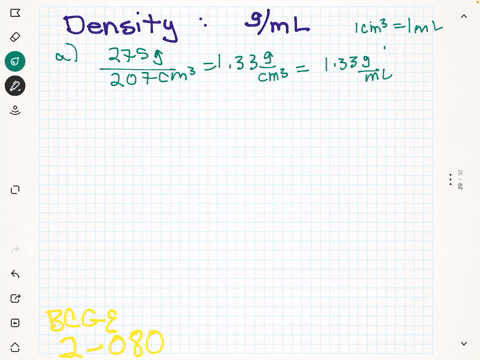 Density : g/mL
1cm³ = 1mL
a) 275g / 207cm³ = 1.33 g/cm³ = 1.33 g/mL
BCG2
2-080
29 / 32